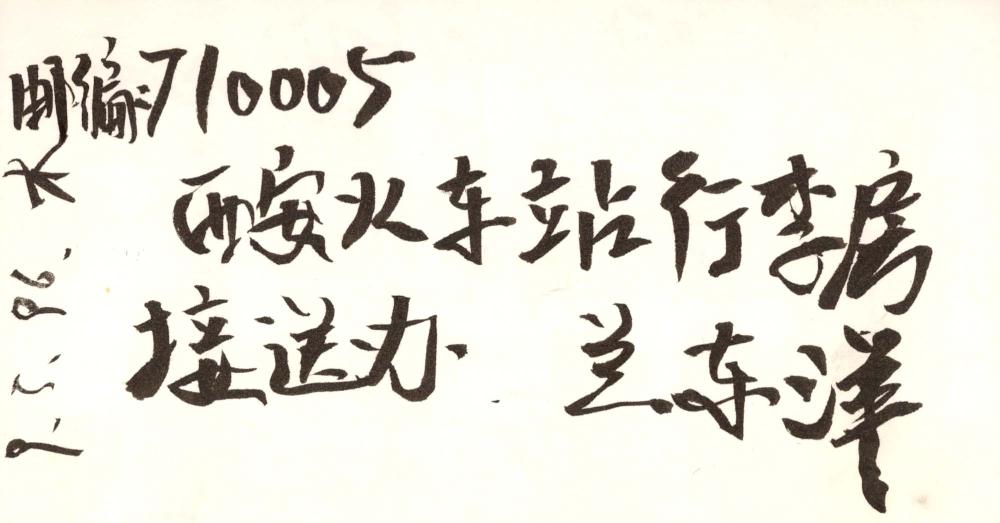 邮编:710005
西安火车站行李房
接送办 兰东洋